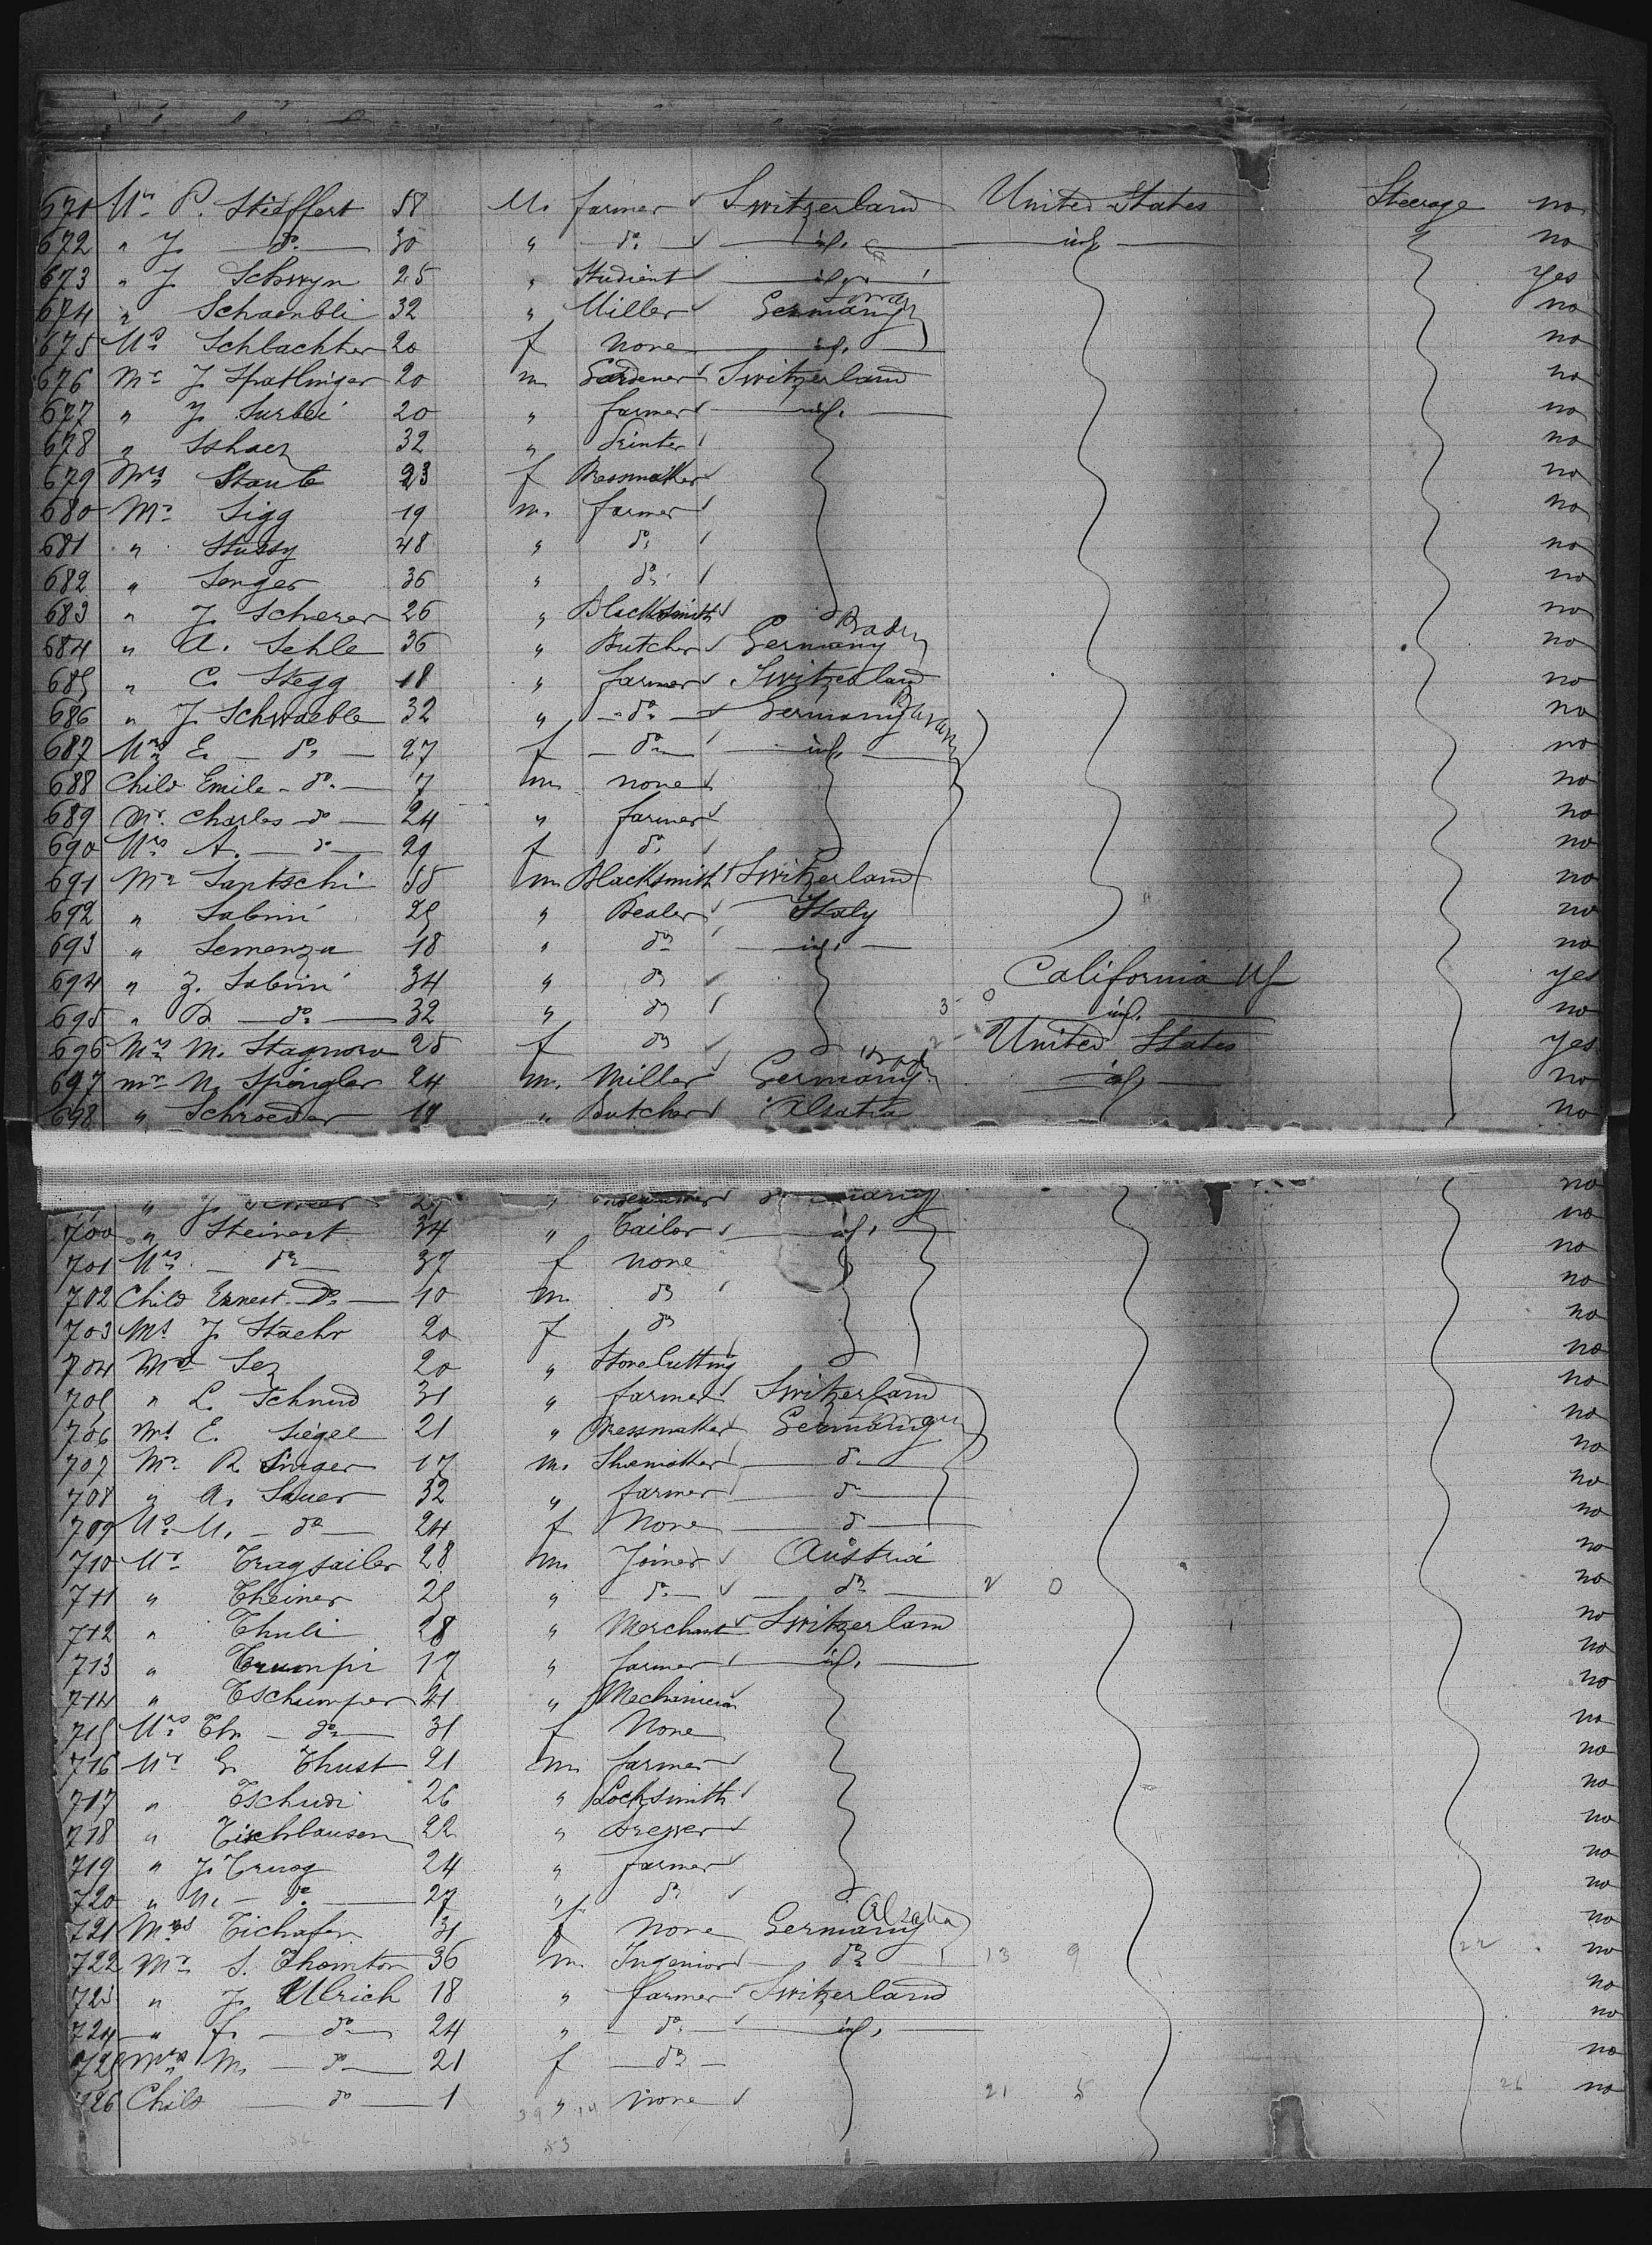 671 Mr P. Steffert 58 M. farmer Switzerland United States Steerage no
672 " J. do 30 " do id. id. no
673 " J Schwyn 25 " Student id. yes
674 " Schaenbli 32 " Miller Germany no
675 Ms Schlachter 20 f None id. no
676 Mr J. Spatlinger 20 m Gardener Switzerland no
677 " J. Surbei 20 " farmer id. no
678 " 32 " Printer no
679 Mrs Staub 23 f Dressmaker no
680 Mr Sigg 19 m. farmer no
681 " Stussy 48 " do no
682 " Senger 36 " do no
683 " J. Scherer 26 " Blacksmith no
684 " A. Sehle 36 " Butcher Germany Baden no
685 " C. Stegg 18 " farmer Switzerland no
686 " J. Schwaeble 32 " do Germany no
687 Mrs E. do 27 f do id. no
688 Child Emile do 7 m. none no
689 Mr. Charles do 24 " farmer no
690 Mrs A. do 29 f do no
691 Mr Santschi 55 m Blacksmith Switzerland no
692 " Sabini 25 " Dealer Italy no
693 " Semenza 18 " do id. no
694 " Z. Sabini 34 " do California US yes
695 " B. do 32 " do 3 0 id. no
696 Mrs M. Stagnoro 25 f do United States yes
697 mr N. Spingler 24 m. Miller Germany id. no
698 " Schroeder " Butcher Alsatia no
" J. no
700 " Steinert 34 " Tailor id. no
701 Mrs do 37 f none no
702 Child Ernest do 10 m. do no
703 Ms J. Staehr 20 f do no
704 20 " Stone Cutting no
705 " L. Schmid 31 " farmer Switzerland no
706 Ms E. Siegel 21 " Dressmaker Germany no
707 Mr. R. Singer 17 m. Shoemaker do no
708 " A. Sauer 32 " farmer do no
709 Ms M. do 24 f None do no
710 Mr Tragsailer 28 m. Joiner Austria no
711 " Theiner 25 " do do 2 0 no
712 " Thuli 28 " Merchant Switzerland no
713 " Trumpi 17 " farmer id. no
714 " Tschumper 41 " Mechanician no
715 Mrs Th. do 31 f None no
716 Mr G Thust 21 m. farmer no
717 " Tschudi 26 " Locksmith no
718 " Tischhauser 22 " no
719 " J. Truog 24 " farmer no
720 " M. do 27 " do no
721 Mrs Tichafer 31 f none Germany Alsatia no
722 Mr S. Thomton 36 m. Ingenior do 13 9 22 no
723 " J. Ulrich 18 " farmer Switzerland no
724 " f. do 24 " do id. no
725 Mrs M. do 21 f do no
726 Child do 1 " none 21 5 26 no
39 14
53